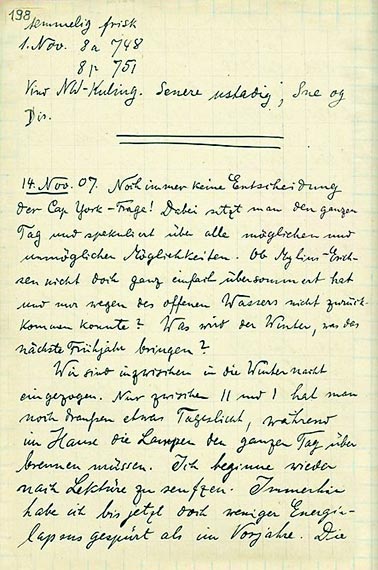 198
temmelig frisk
1. Nov. 8a 748
8p 751
Vind NW-Kuling. Senere ustadig; Sne og
Dis.
14. Nov. 07. Noch immer keine Entscheidung
der Cap York-Frage! Dabei sitzt man den ganzen
Tag und spekuliert über alle möglichen und
unmöglichen Möglichkeiten. Ob Mylius-Erich-
sen nicht doch ganz einfach übersommert hat
und nur wegen des offenen Wassers nicht zurück-
kommen konnte? Was wird der Winter, was das
nächste Frühjahr bringen?
Wir sind inzwischen in die Winternacht
eingezogen. Nur zwischen 11 und 1 hat man
noch draußen etwas Tageslicht, während
im Hause die Lampen den ganzen Tag über
brennen müssen. Ich beginne wieder
nach Lektüre zu seufzen. Immerhin
habe ich bis jetzt doch weniger Energie-
lapsus gespürt als im Vorjahre. Die